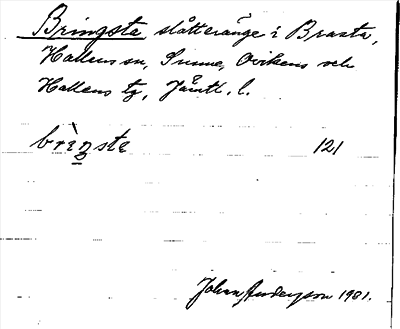 Bringsta slåtteränge i Braxta,
Hallens sn, Sunne, Ovikens och
Hallens tg, Jämtl. l.
brìŋste 121
Johan Anderzson 1901.